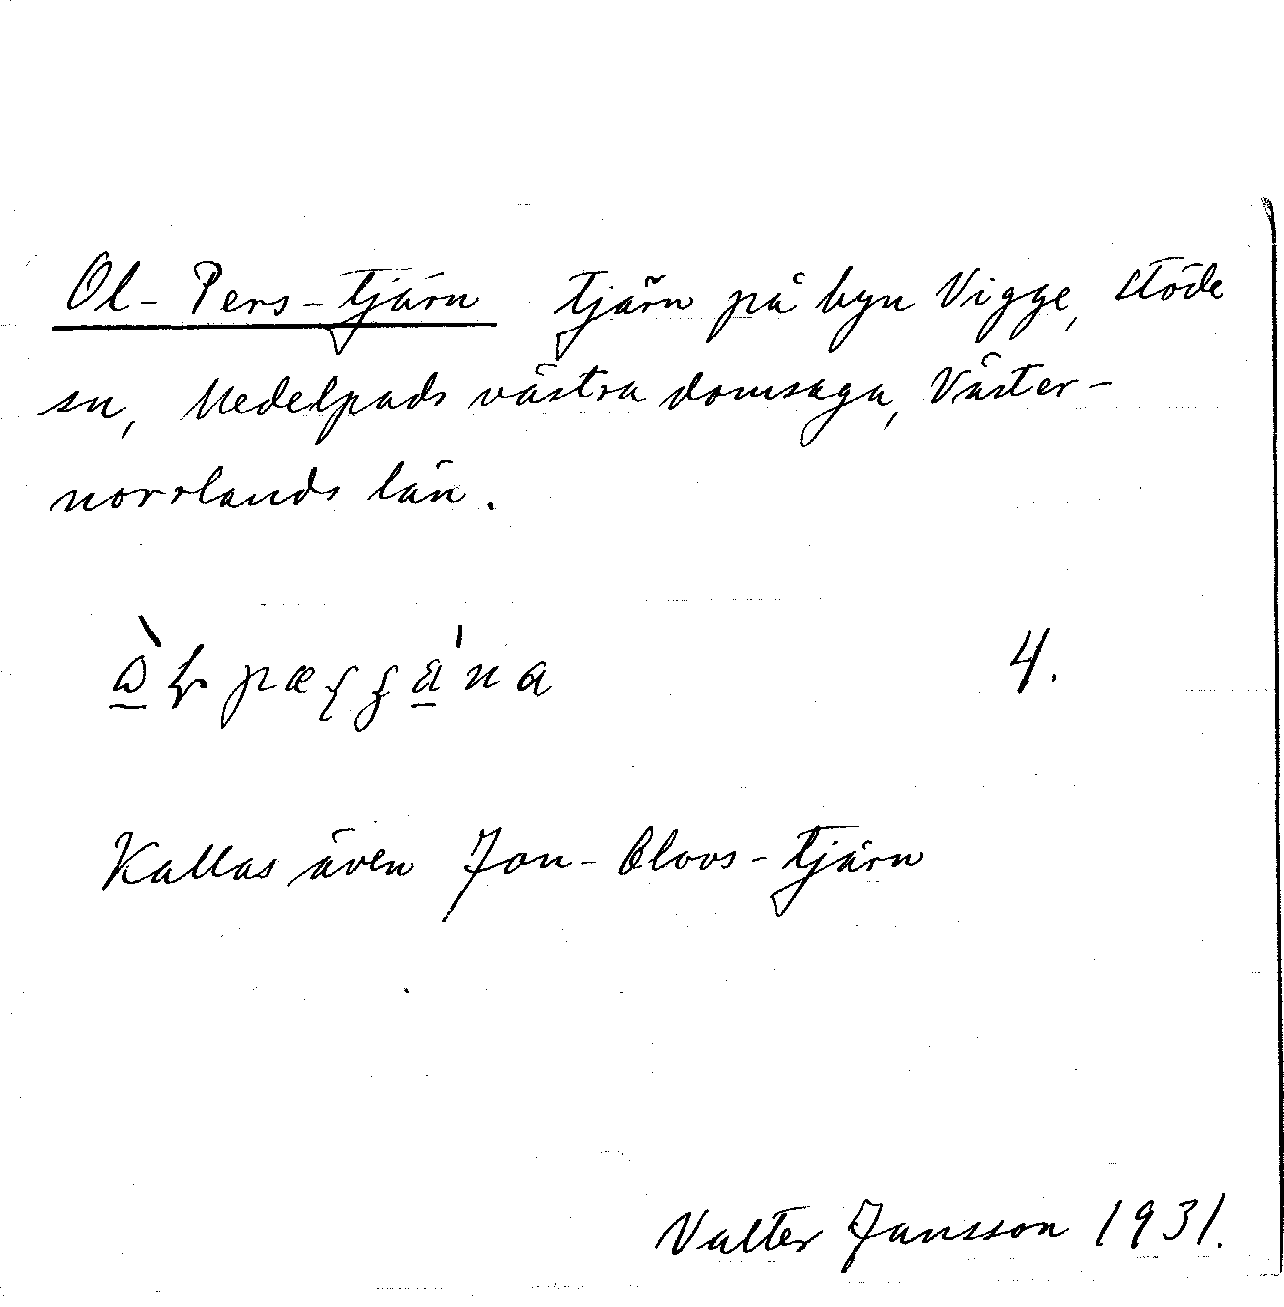 Ol-Pers-tjärn tjärn på byn Vigge, Stöde
sn, Medelpads västra domsaga, Väster-
norrlands län.
4.
Kallas även Jon-Olovs-tjärn
Valter Jansson 1931.